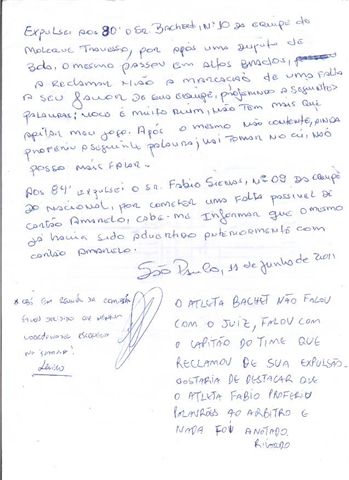 Expulsei aos 80' o Sr. Bachet, Nº 10 da equipe do
Moleque Travesso, por após uma disputa de
Bola, o mesmo passou em altos brados,
a reclamar não a marcação de uma falta
a seu favor de sua equipe, proferindo as seguintes
palavras; você é muito ruim, não tem mais que
apitar meu jogo. Após o mesmo não contente, ainda
proferiu a seguinte palavra; vai tomar no cú, não
posso mais falar.
Aos 84' expulsei o Sr. Fabio Sienas, Nº 09 da equipe
do Nacional, por cometer uma falta passivel de
cartão amarelo, cabe-me informar que o mesmo
já havia sido advertido anteriormente com
cartão amarelo.
São Paulo, 11 de junho de 2011
em reunião da comissão
ficou decidido que
O ATLETA BACHET NÃO FALOU
COM O JUIZ, FALOU COM
O CAPITÃO DO TIME QUE
RECLAMOU DE SUA EXPULSÃO.
GOSTARIA DE DESTACAR QUE
O ATLETA FABIO PROFERIU
PALAVRÕES AO ARBITRO E
NADA FOI ANOTADO.
RICARDO